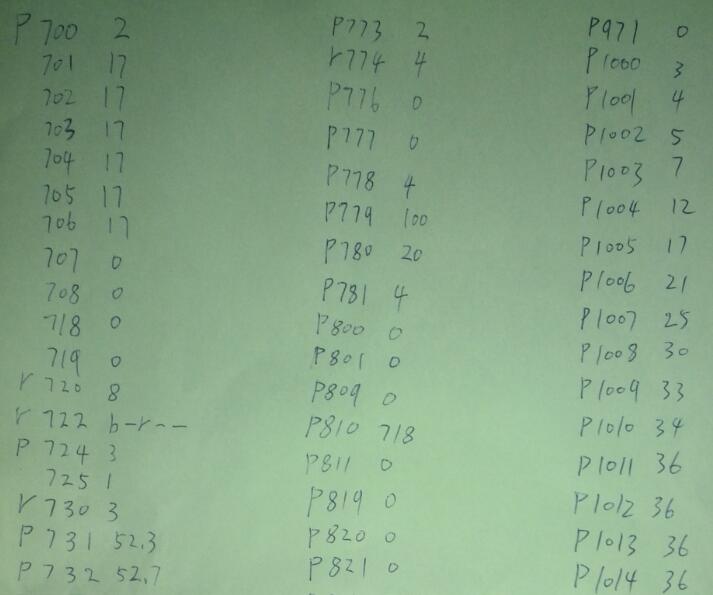 P 700 2
701 17
702 17
703 17
704 17
705 17
706 17
707 0
708 0
718 0
719 0
r 720 8
r 722 b-r--
P 724 3
725 1
r 730 3
P 731 52.3
P 732 52.7
P773 2
r774 4
P776 0
P777 0
P778 4
P779 100
P780 20
P781 4
P800 0
P801 0
P809 0
P810 718
P811 0
P819 0
P820 0
P821 0
P971 0
P1000 3
P1001 4
P1002 5
P1003 7
P1004 12
P1005 17
P1006 21
P1007 25
P1008 30
P1009 33
P1010 34
P1011 36
P1012 36
P1013 36
P1014 36